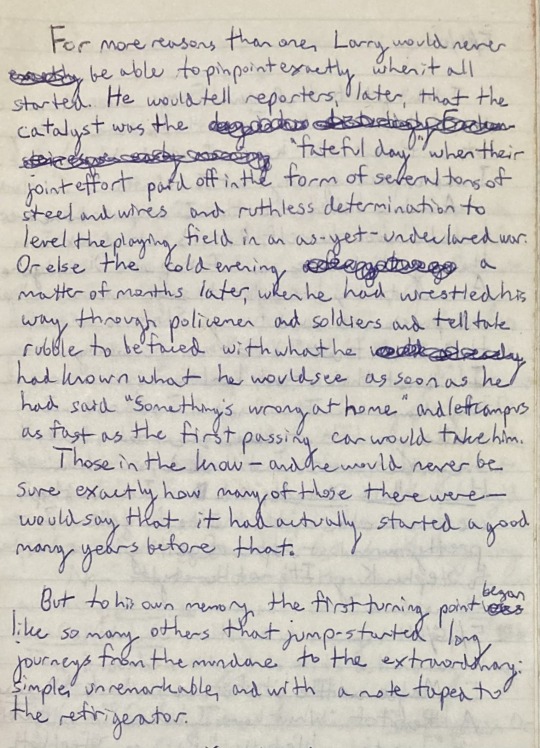 For more reasons than one, Larry would never
be able to pinpoint exactly when it all
started. He would tell reporters, later, that the
catalyst was the
"fateful day" when their
joint effort paid off in the form of several tons of
steel and wires and ruthless determination to
level the playing field in an as-yet-undeclared war.
Or else the cold evening a
matter of months later, when he had wrestled his
way through policemen and soldiers and telltale
rubble to be faced with what he
had known what he would see as soon as he
had said "Something's wrong at home" and left campus
as fast as the first passing car would take him.
Those in the know — and he would never be
sure exactly how many of those there were —
would say that it had actually started a good
many years before that.
But to his own memory, the first turning point began
like so many others that jump-started long
journeys from the mundane to the extraordinary:
simple, unremarkable, and with a note taped to
the refrigerator.